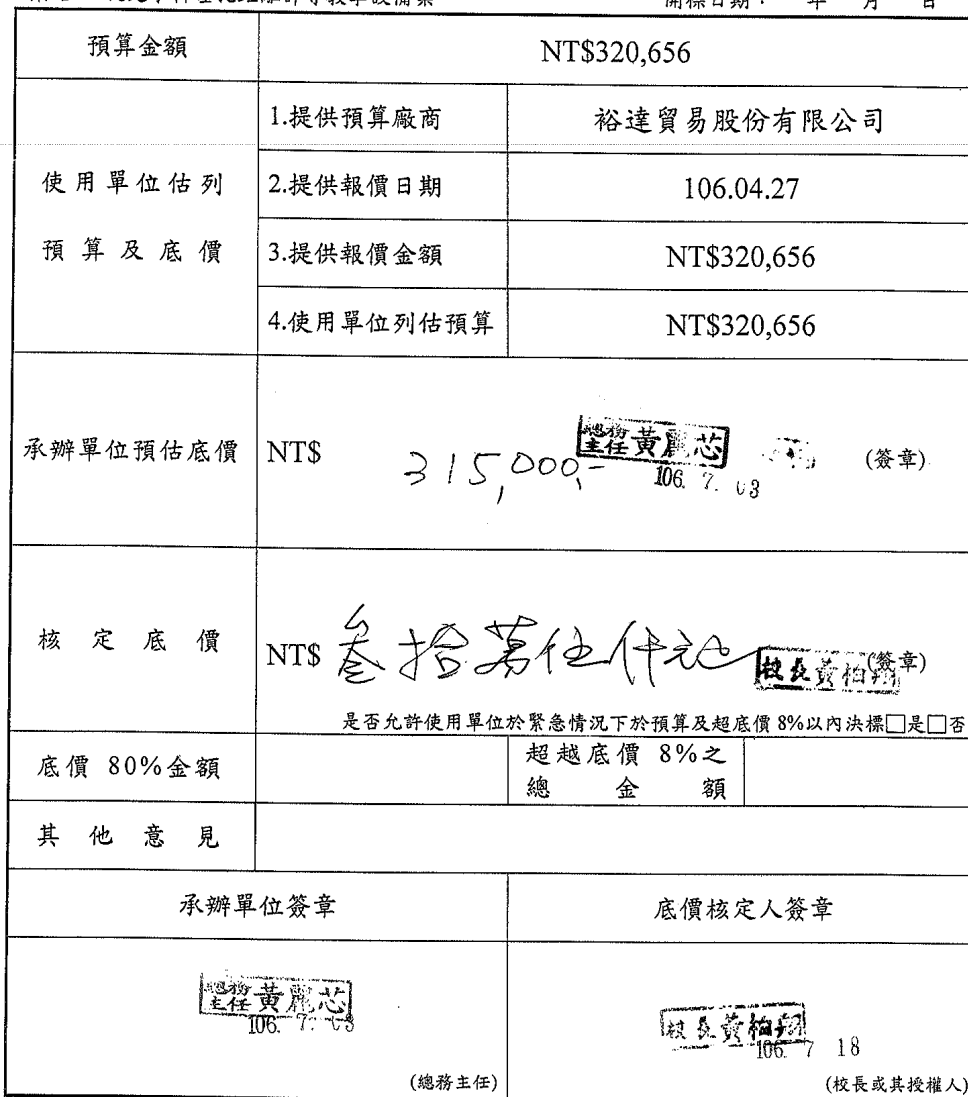 開標日期： 年 月 日
預算金額 NT$320,656
使用單位估列
預算及底價
1.提供預算廠商 裕達貿易股份有限公司
2.提供報價日期 106.04.27
3.提供報價金額 NT$320,656
4.使用單位列估預算 NT$320,656
承辦單位預估底價 NT$ 315,000.- (簽章)
總務
主任 黃麗芯
106. 7. 03
核定底價 NT$ 叁拾萬伍仟元 (簽章)
校長黃柏翔
是否允許使用單位於緊急情況下於預算及超底價 8%以內決標□是□否
底價 80%金額
超越底價 8%之
總金額
其他意見
承辦單位簽章 底價核定人簽章
總務
主任 黃麗芯
106. 7. 03
校長黃柏翔
106 7 18
(總務主任) (校長或其授權人)